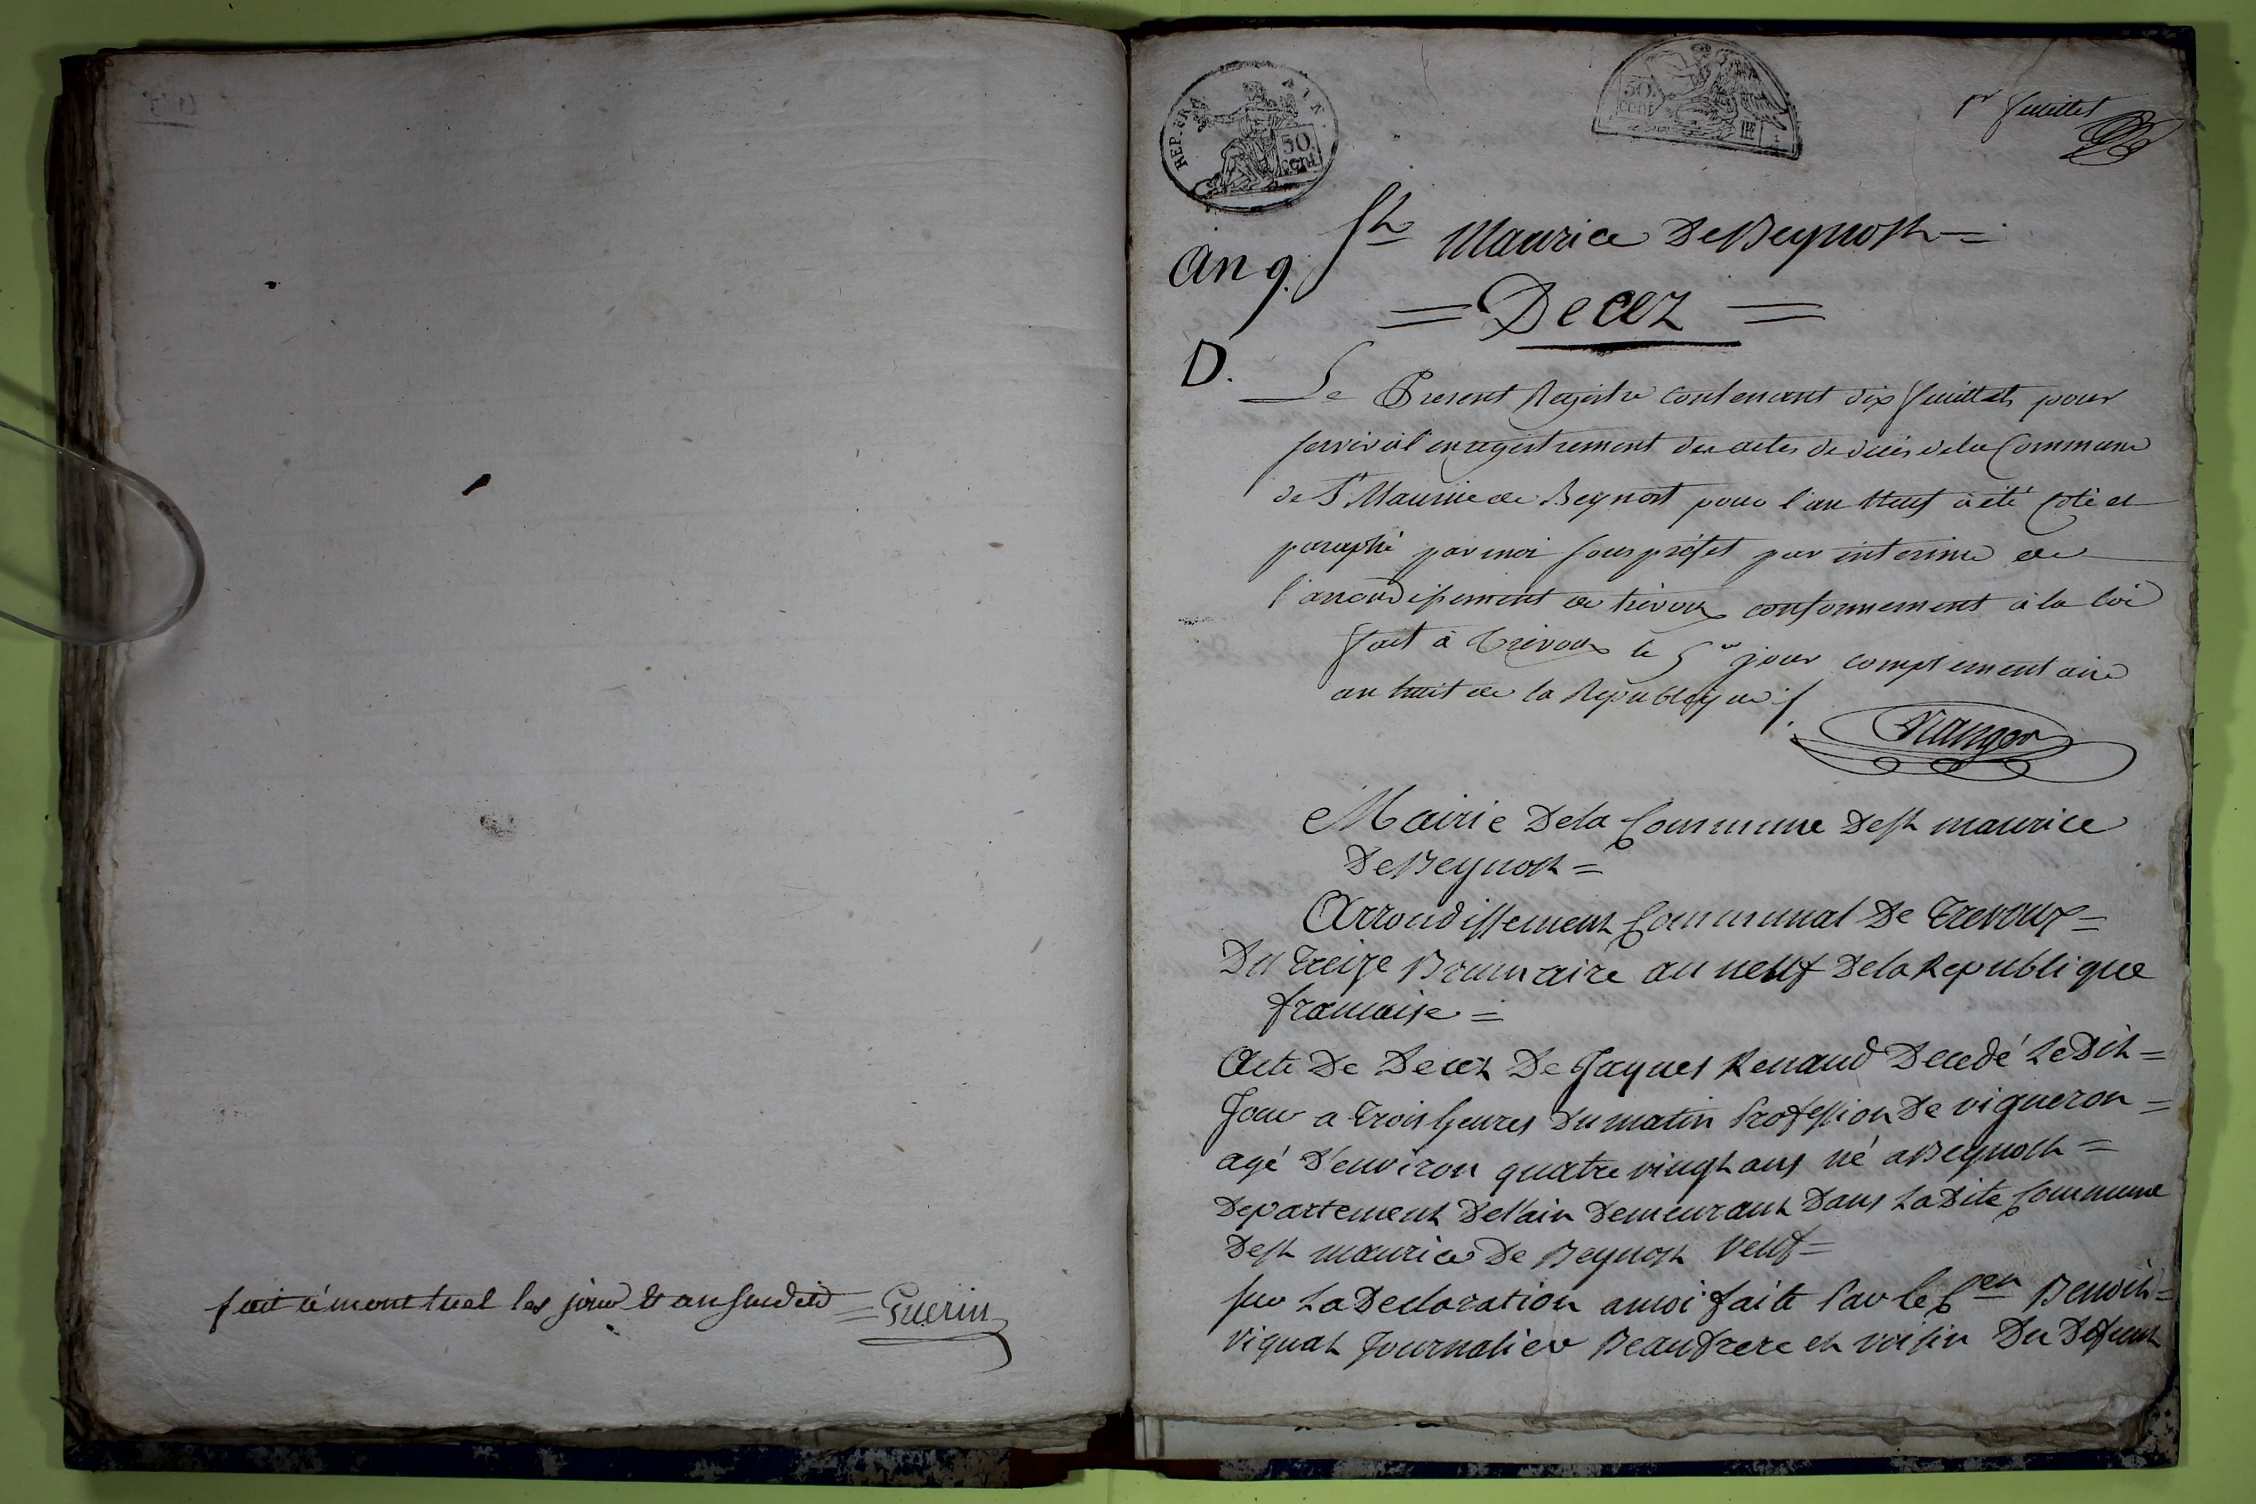 fait à montluel les jour et an susdit = Guerin
REP. FRA
50.
cent.
50.
cent
1er feuillet
St Maurice De Beynost =
an 9.
= Decez =
D.
Le Present Registre contenant dix feuillets pour
servir à l'enregistrement des actes de décès de la Commune
de St Maurice de Beynost pour l'an Neuf à été coté et
paraphé par moi sous préfet par interime de
l'arrondissement de trevoux conformement à la loi
fait à Trevoux le 5e jour complementaire
an huit de la Republique
Mairie De la Commune De St maurice
De Beynost =
Arrondissement Communal De Trevoux =
Du treize Brumaire an neuf De la Republique
francaise =
Acte De Decez De Jaques Renaud Decedé Le Dit =
Jour a trois heures Du matin Profession De vigneron =
agé D'environ quatre vingt ans né a Beynost =
Departement De l'ain Demeurant Dans La Dite Commune
De St maurice De Beynost veuf =
sur La Declaration a moi faite Par le Cen Benoit =
Viguat Journalier Beaufrere et voisin Du Defunt